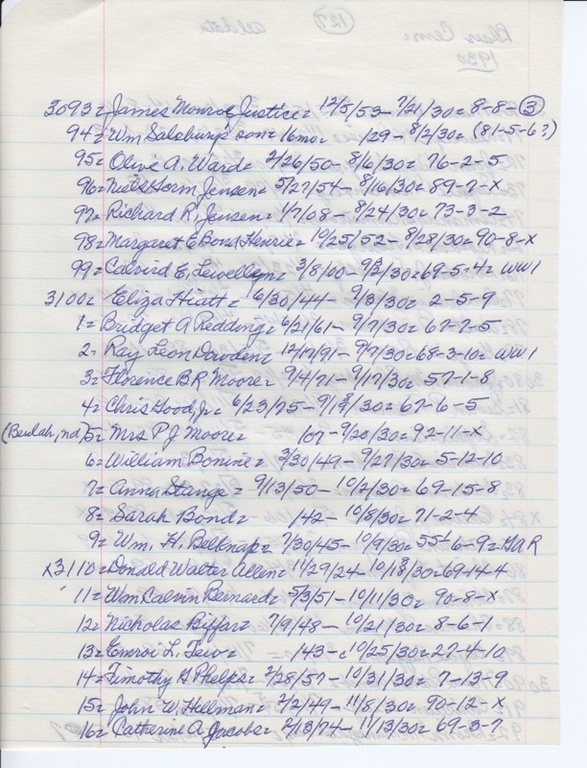 (127)
1930
3093= James Monroe Justice= 12/5/53- 7/21/30= 8-8-(3)
94= Wm Salsburys son= 16mo= 1/29- 8/2/30= (81-5-6?)
95= Olive A. Ward= 2/26/50- 8/6/30= 76-2-5
96= Niels Herm Jensen= 5/27/54- 8/16/30= 89-7-X
97= Richard R. Jensen= 1/7/08- 8/24/30= 73-3-2
98= Margaret E Bond Henrie= 10/25/52- 8/28/30= 90-8-X
99= Calvird E. Lewellyn= 3/8/00- 9/2/30= 69-5-4= WW1
3100= Eliza Hiatt= 6/30/44- 9/3/30= 2-5-9
1= Bridget A Redding= 6/21/61- 9/7/30= 67-7-5
2= Ray Leon Dowden= 12/17/91- 9/7/30= 68-3-10= WW1
3= Florence B R Moore= 9/4/71- 9/17/30= 57-1-8
4= Chris Hood, Jr= 6/23/75- 9/19/30= 67-6-5
(Beulah, nd) 5= Mrs P J Moore= /07- 9/20/30= 92-11-X
6= William Bonine= 3/30/49- 9/27/30= 5-12-10
7= Anna Stange= 9/13/50- 10/2/30= 69-15-8
8= Sarah Bond= /42- 10/8/30= 71-2-4
9= Wm. H. Belknap= 7/30/45- 10/9/30= 55-6-9= GAR
X3110= Donald Walter Allen= 11/29/24- 10/18/30= 69-14-4
11= Wm Calvin Bernard= 5/3/51- 10/11/30= 90-8-X
12= Nicholas Biffar= 7/9/48- 10/21/30= 8-6-1
13= L. /43- 10/25/30= 27-4-10
14= Timothy G Phelps= 2/28/57- 10/31/30= 7-13-9
15= John W. Hillman= 2/2/49- 11/8/30= 90-12-X
16= Catherine A. Jacobs= 2/13/74- 11/13/30= 69-3-7